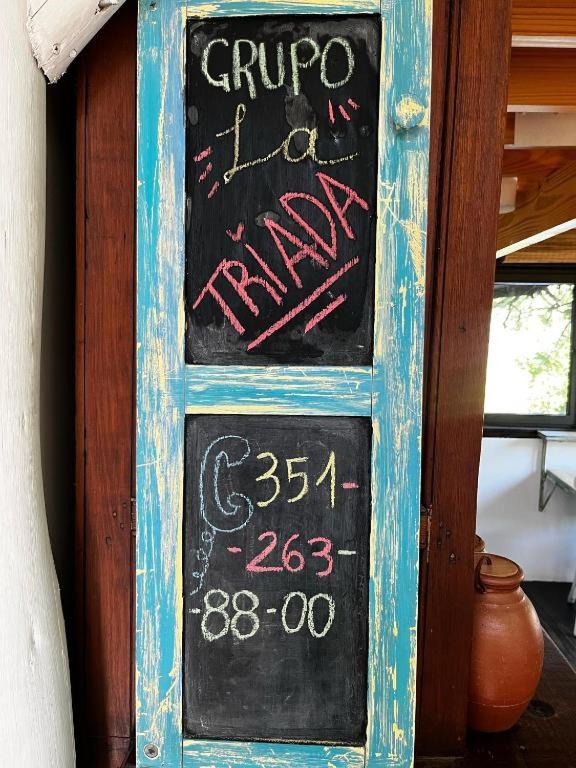 GRUPO
La
TRiADA
351-
-263-
-88-00